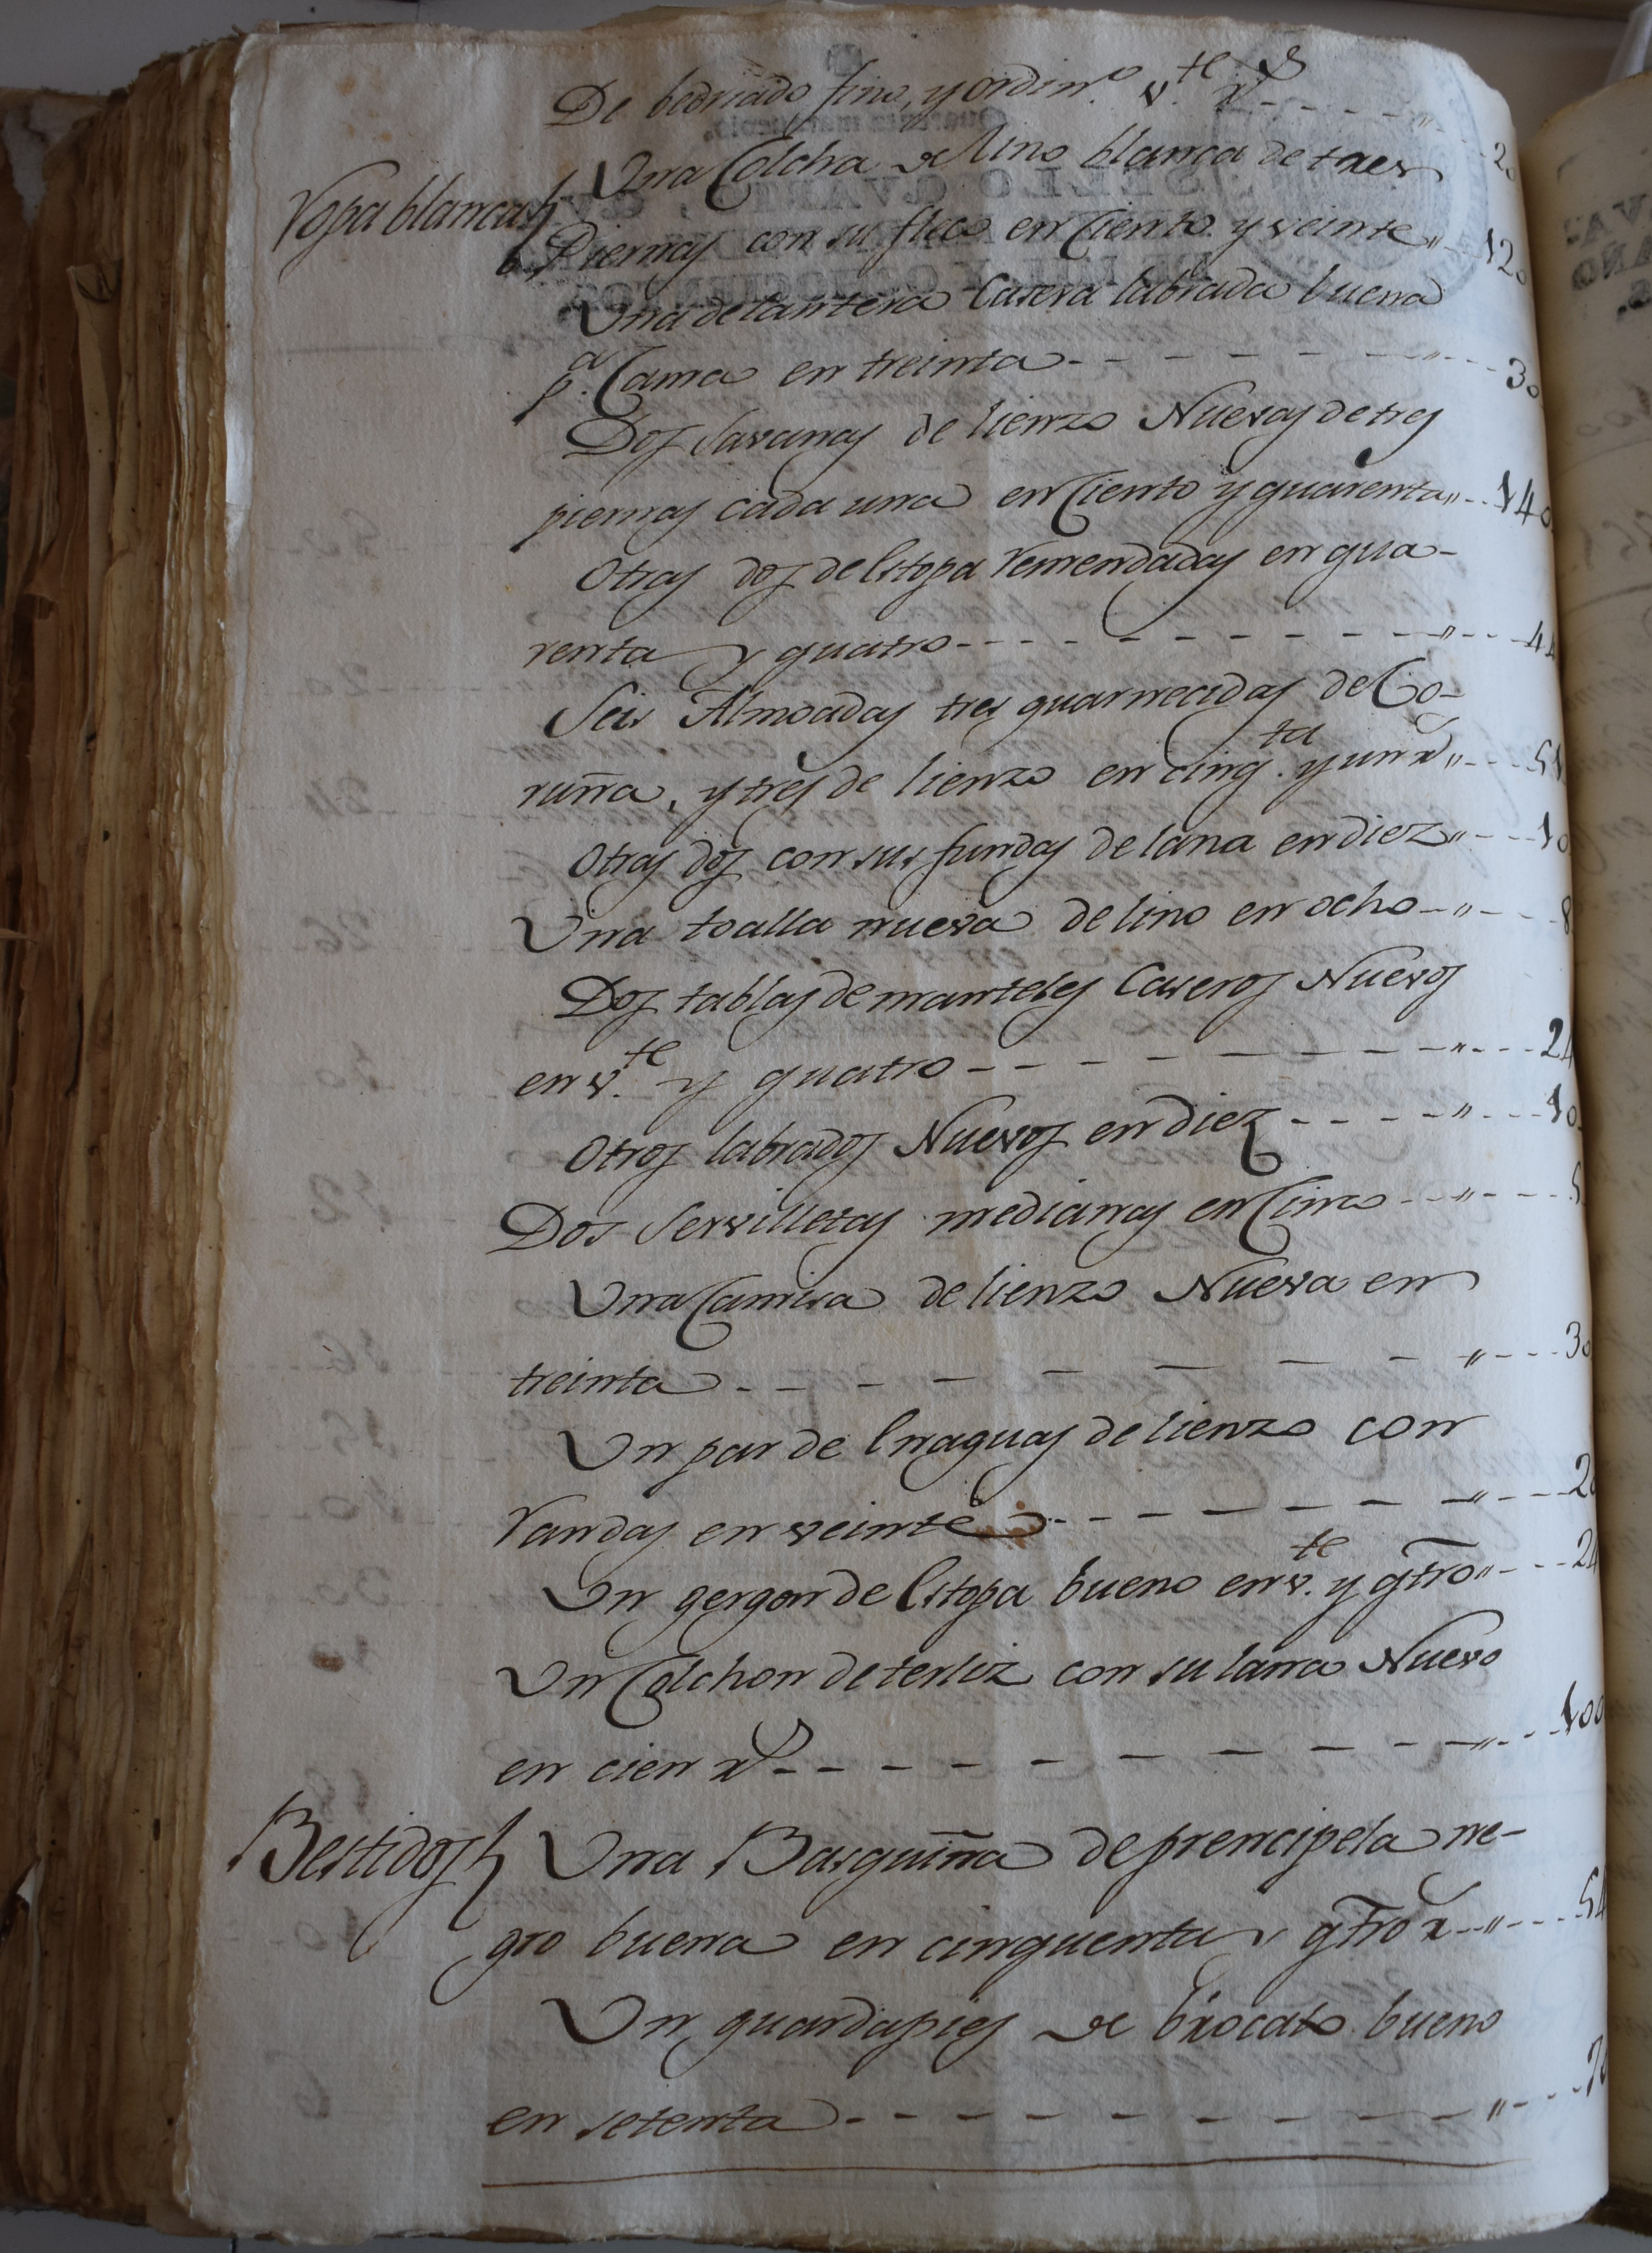 De bedriado fino, y ordin.º v.te rs - - - - 20
Ropa blanca
Una Colcha de lino blanca de tres
Piernas con su fleco en Ciento y veinte - 120
Una delantera Casera labrada buena
p.a Cama en treinta - - - - - - - 30
Dos savanas de lienzo Nuevas de tres
piernas cada una en Ciento y quarenta - - 140
Otras dos de estopa remendadas en qua-
renta y quatro - - - - - - - - - 44
Seis Almoadas tres guarnecidas de Co-
ruña, y tres de lienzo en cinq.ta y un rs - - - 51
Otras dos con sus fundas de lana en diez - - - 10
Una toalla nueva de lino en ocho - - - - 8
Dos tablas de manteles Caseros Nuevos
en v.te y quatro - - - - - - - - - 24
Otros labrados Nuevos en diez - - - - - - 10
Dos Servilletas medianas en Cinco - - - - 5
Una Camisa de lienzo Nueva en
treinta - - - - - - - - - - 30
Un par de Enaguas de lienzo con
randas en veinte - - - - - - - - - 20
Un gergon de Estopa bueno en v.te y qtro - - - 24
Un Colchon de terliz con su lana Nuevo
en cien rs - - - - - - - - - - 100
Bestidos
Una Basquiña de prencipela ne-
gro buena en cinquenta y qtro rs - - - - 54
Un guardapies de brocato bueno
en setenta - - - - - - - - - - 70